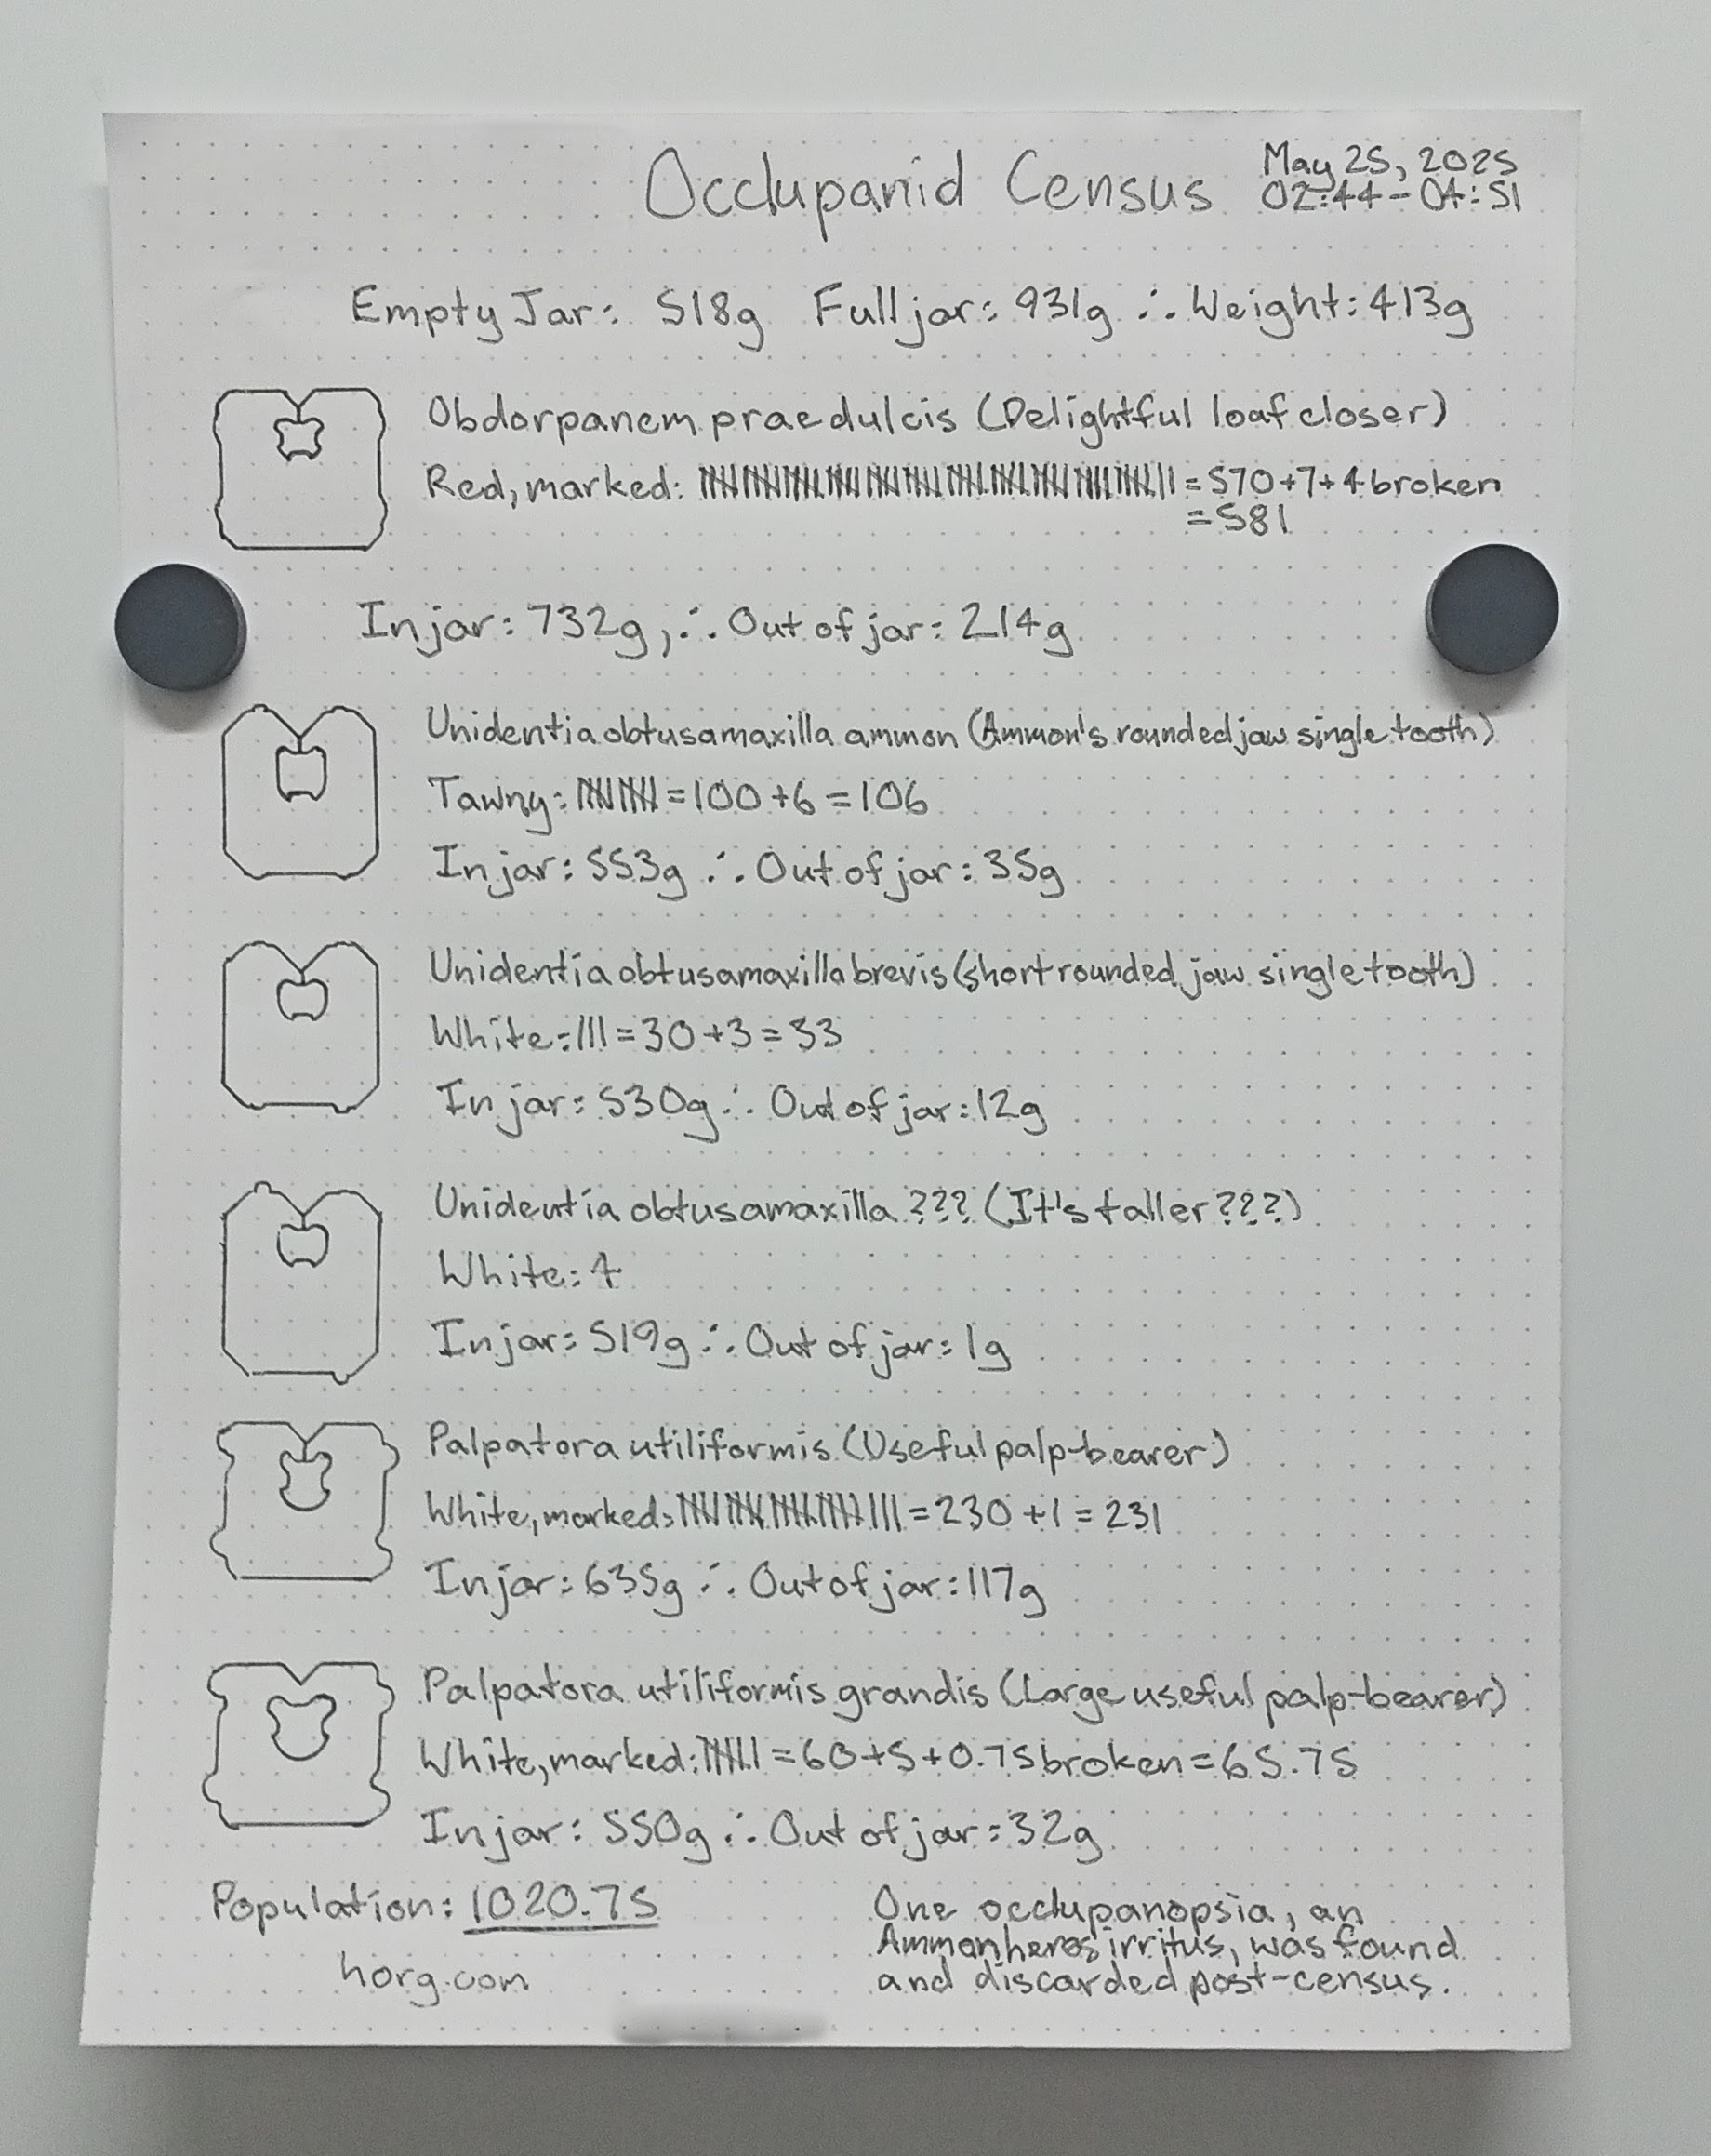 Occlupanid Census
May 25, 2025
02:44 - 04:51
Empty Jar: 518g Full jar: 931g ∴ Weight: 413g
Obdorpanem praedulcis (Delightful loaf closer)
Red, marked: = 570 + 7 + 4 broken
= 581
In jar: 732g, ∴ Out of jar: 214g
Unidentia obtusamaxilla ammon (Ammon's rounded jaw single tooth)
Tawny: = 100 + 6 = 106
In jar: 553g ∴ Out of jar: 35g
Unidentia obtusamaxilla brevis (short rounded jaw single tooth)
White: ||| = 30 + 3 = 33
In jar: 530g ∴ Out of jar: 12g
Unidentia obtusamaxilla ??? (It's taller???)
White: 4
In jar: 519g ∴ Out of jar: 1g
Palpatora utiliformis (Useful palp-bearer)
White, marked: = 230 + 1 = 231
In jar: 635g ∴ Out of jar: 117g
Palpatora utiliformis grandis (Large useful palp-bearer)
White, marked: = 60 + 5 + 0.75 broken = 65.75
In jar: 550g ∴ Out of jar: 32g
Population: 1020.75
horg.com
One occlupanopsia, an
Ammonheros irritus, was found
and discarded post-census.